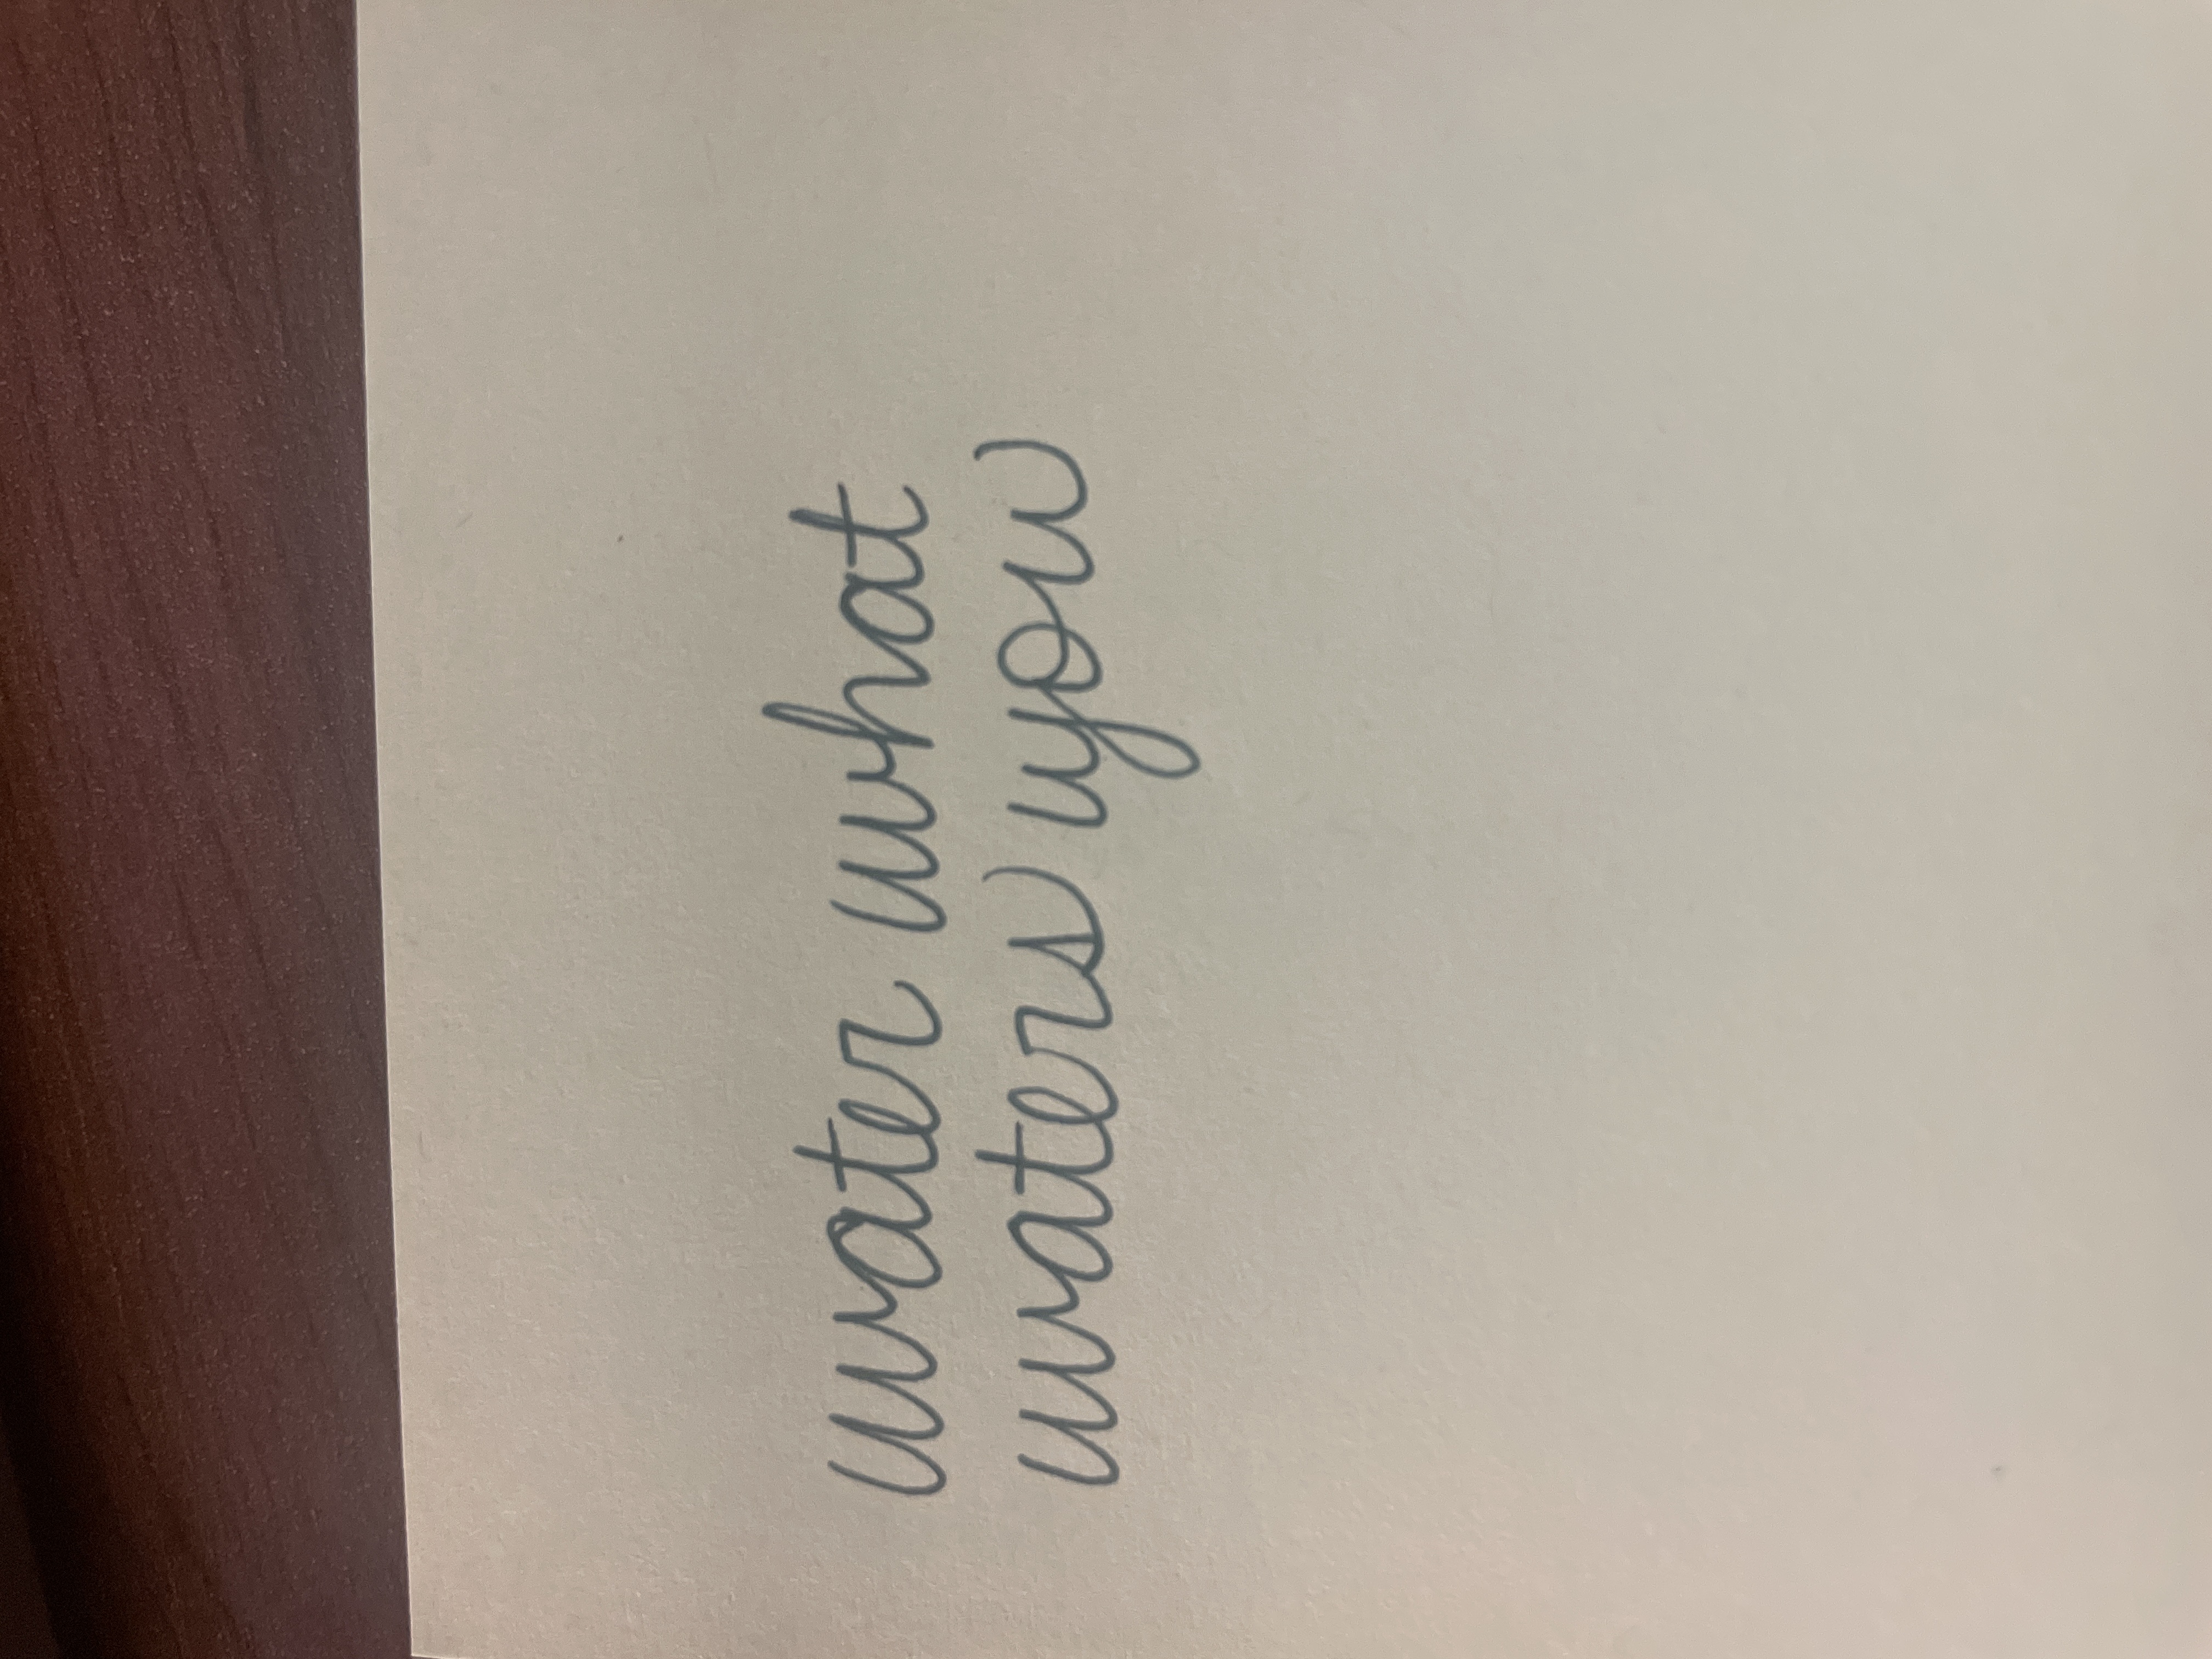 water what
waters you